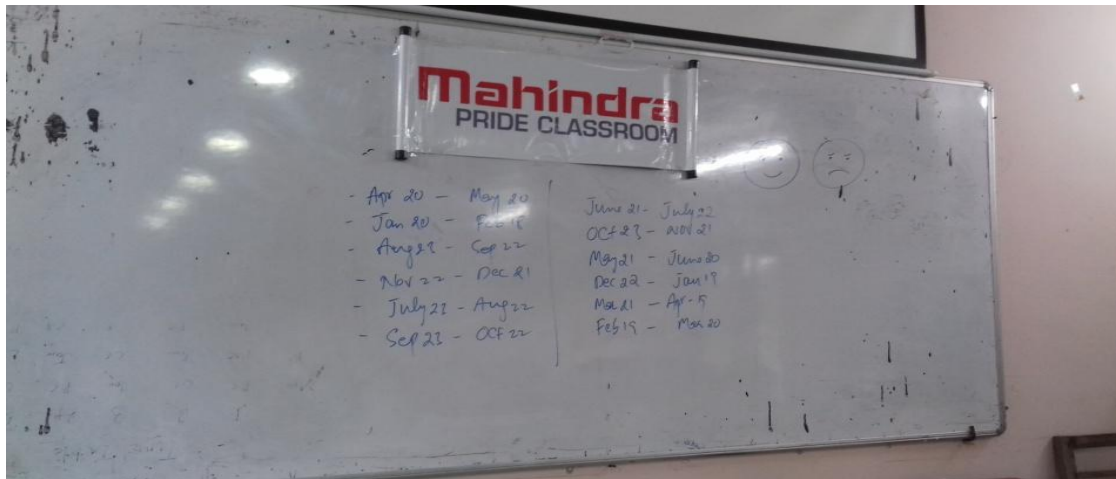 Mahindra
PRIDE CLASSROOM
- Apr 20 - May 20
- Jan 20 - Feb 18
- Aug 23 - Sep 22
- Nov 22 - Dec 21
- July 23 - Aug 22
- Sep 23 - OCT 22
June 21 - July 22
OCT 23 - NOV 21
May 21 - June 20
Dec 22 - Jan 19
Mar 21 - Apr - 19
Feb 19 - Mar 20